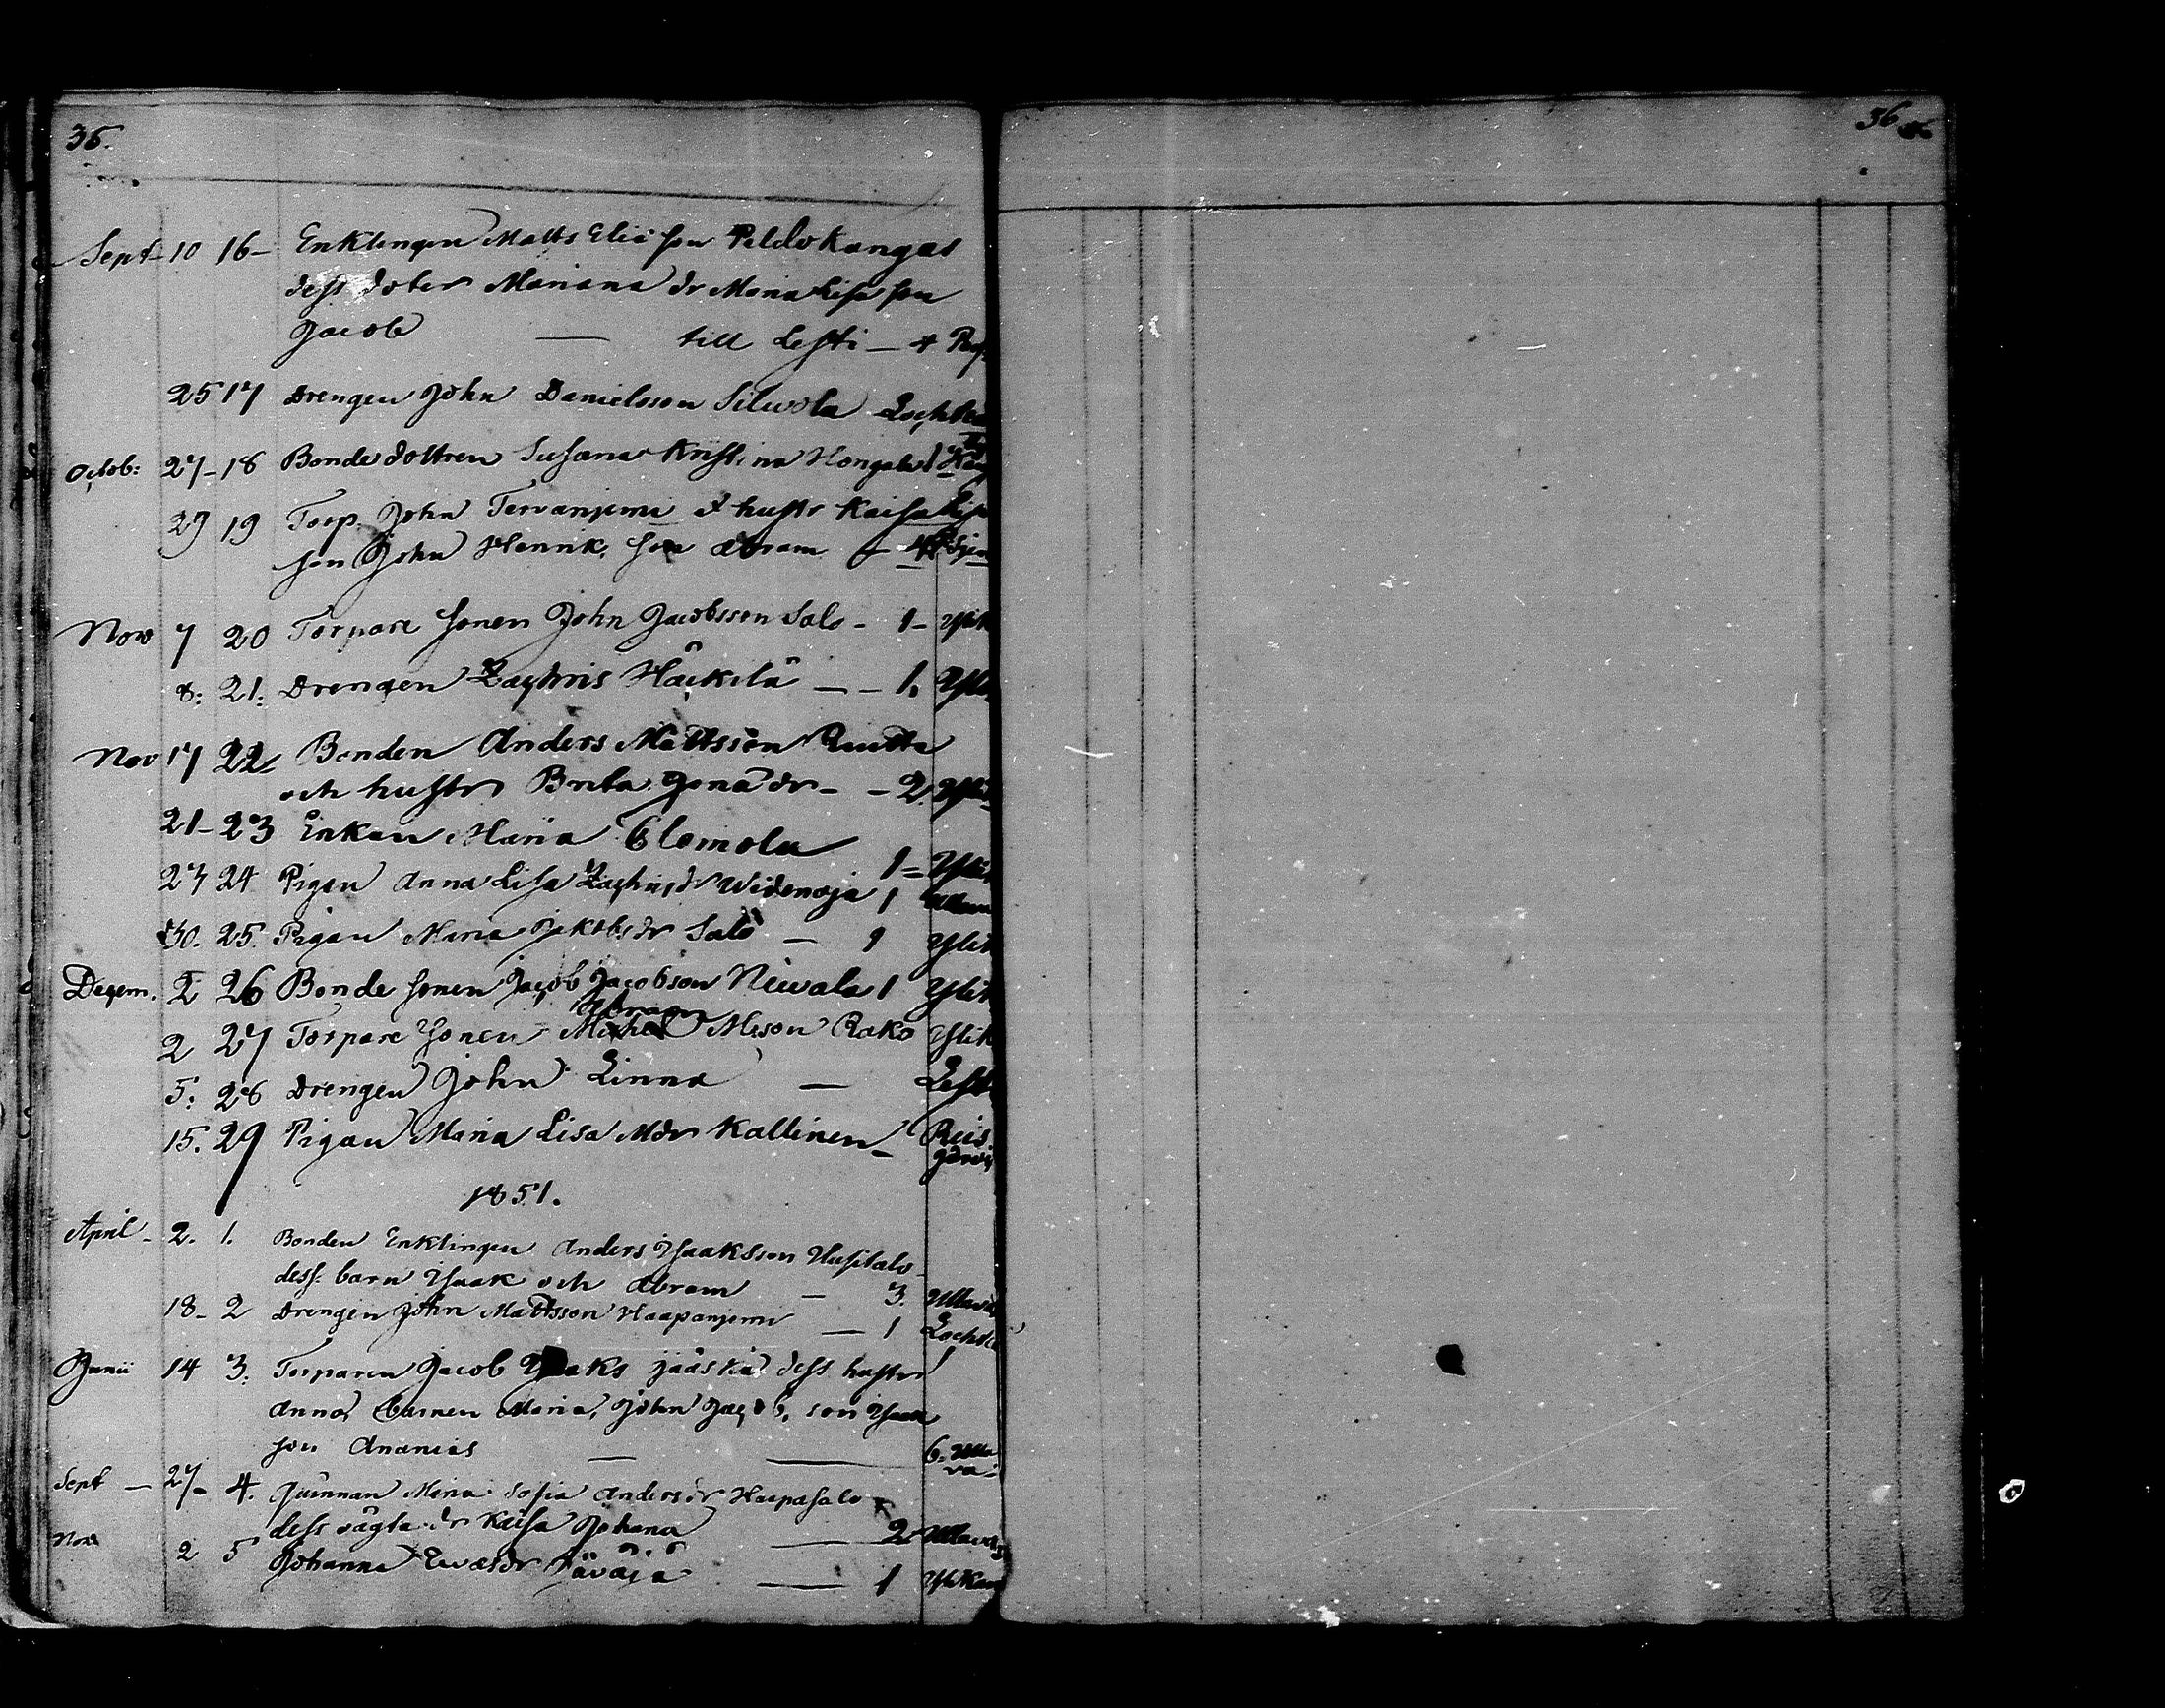 36.
36
Sept - 10 16 - Enklingen Matts Elia son Peldokangas
dess doter Mariana dr Maria Lisa son
Jacob — till Lesti — 4 Pers
25 17 Drengen John Danielsson Silwola Lochte
Octob: 27 - 18 Bonde dottren Susana Kristina Hongala 1
29 19 Torp. John Tervanjemi & hustr Kaisa Lisa
son John Henrik, son Abram — 4
Nov 7 20 Torpare sonen John Jacobsson Salo - 1 - Ylik
8: 21: Drengen Zachris Häckilä — — 1. Ylik
Nov 17 22 Bonden Anders Mattsson Ruutta
och hustr Brita Jona dr - - 2. Ylik
21 - 23 Enkan Maria Elomola 1 = Ylik
27 24 Pigan Anna Lisa Zachrisdr Widenoja 1 Ullava
30. 25. Pigan Maria Jakobsdr Salo — 1 Ylik
Decem. 2 26 Bonde sonen Jacob Jacobson Niwala 1 Ylik
Abram
2 27 Torpare sonen Michel Meson Rako Ylik
5: 28 Drengen John Linna — Lest
15. 29 Pigan Maria Lisa Mdr Kallinen - Reis
järvi
1851.
April - 2. 1. Bonden Enklingen Anders Isaaksson Uusitalo
dess: barn Isaak och Abram — 3. Ullava
18 - 2 Drengen John Mattsson Haapanjemi — 1 Lochte
Junii 14 3. Torparen Jacob Isaaks Jääskä dess hustr
Anna, barnen Maria, John Jacob, son Isaak
son Ananias — — 6. Ulla
va
Sept — 27 - 4. Quinnan Maria Sofia Andersdr Haapasalo
dess oägta dr Kaisa Johana — 2 Ullava
Nov 2 5 Johanna Ewasdr Jäväjä — 1 Ylikan